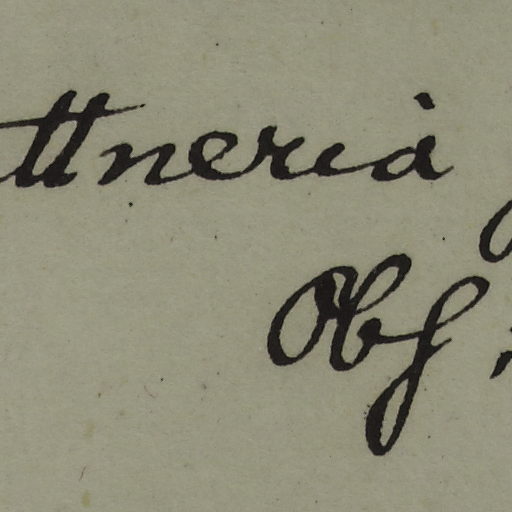 ttneria
Obs: